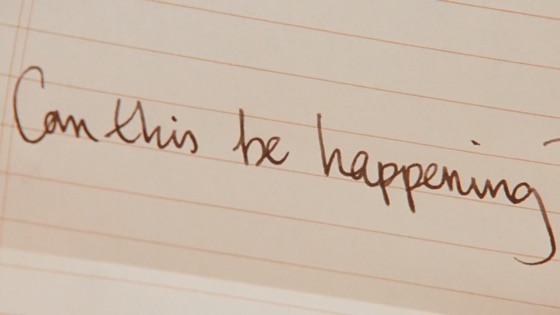 Can this be happening